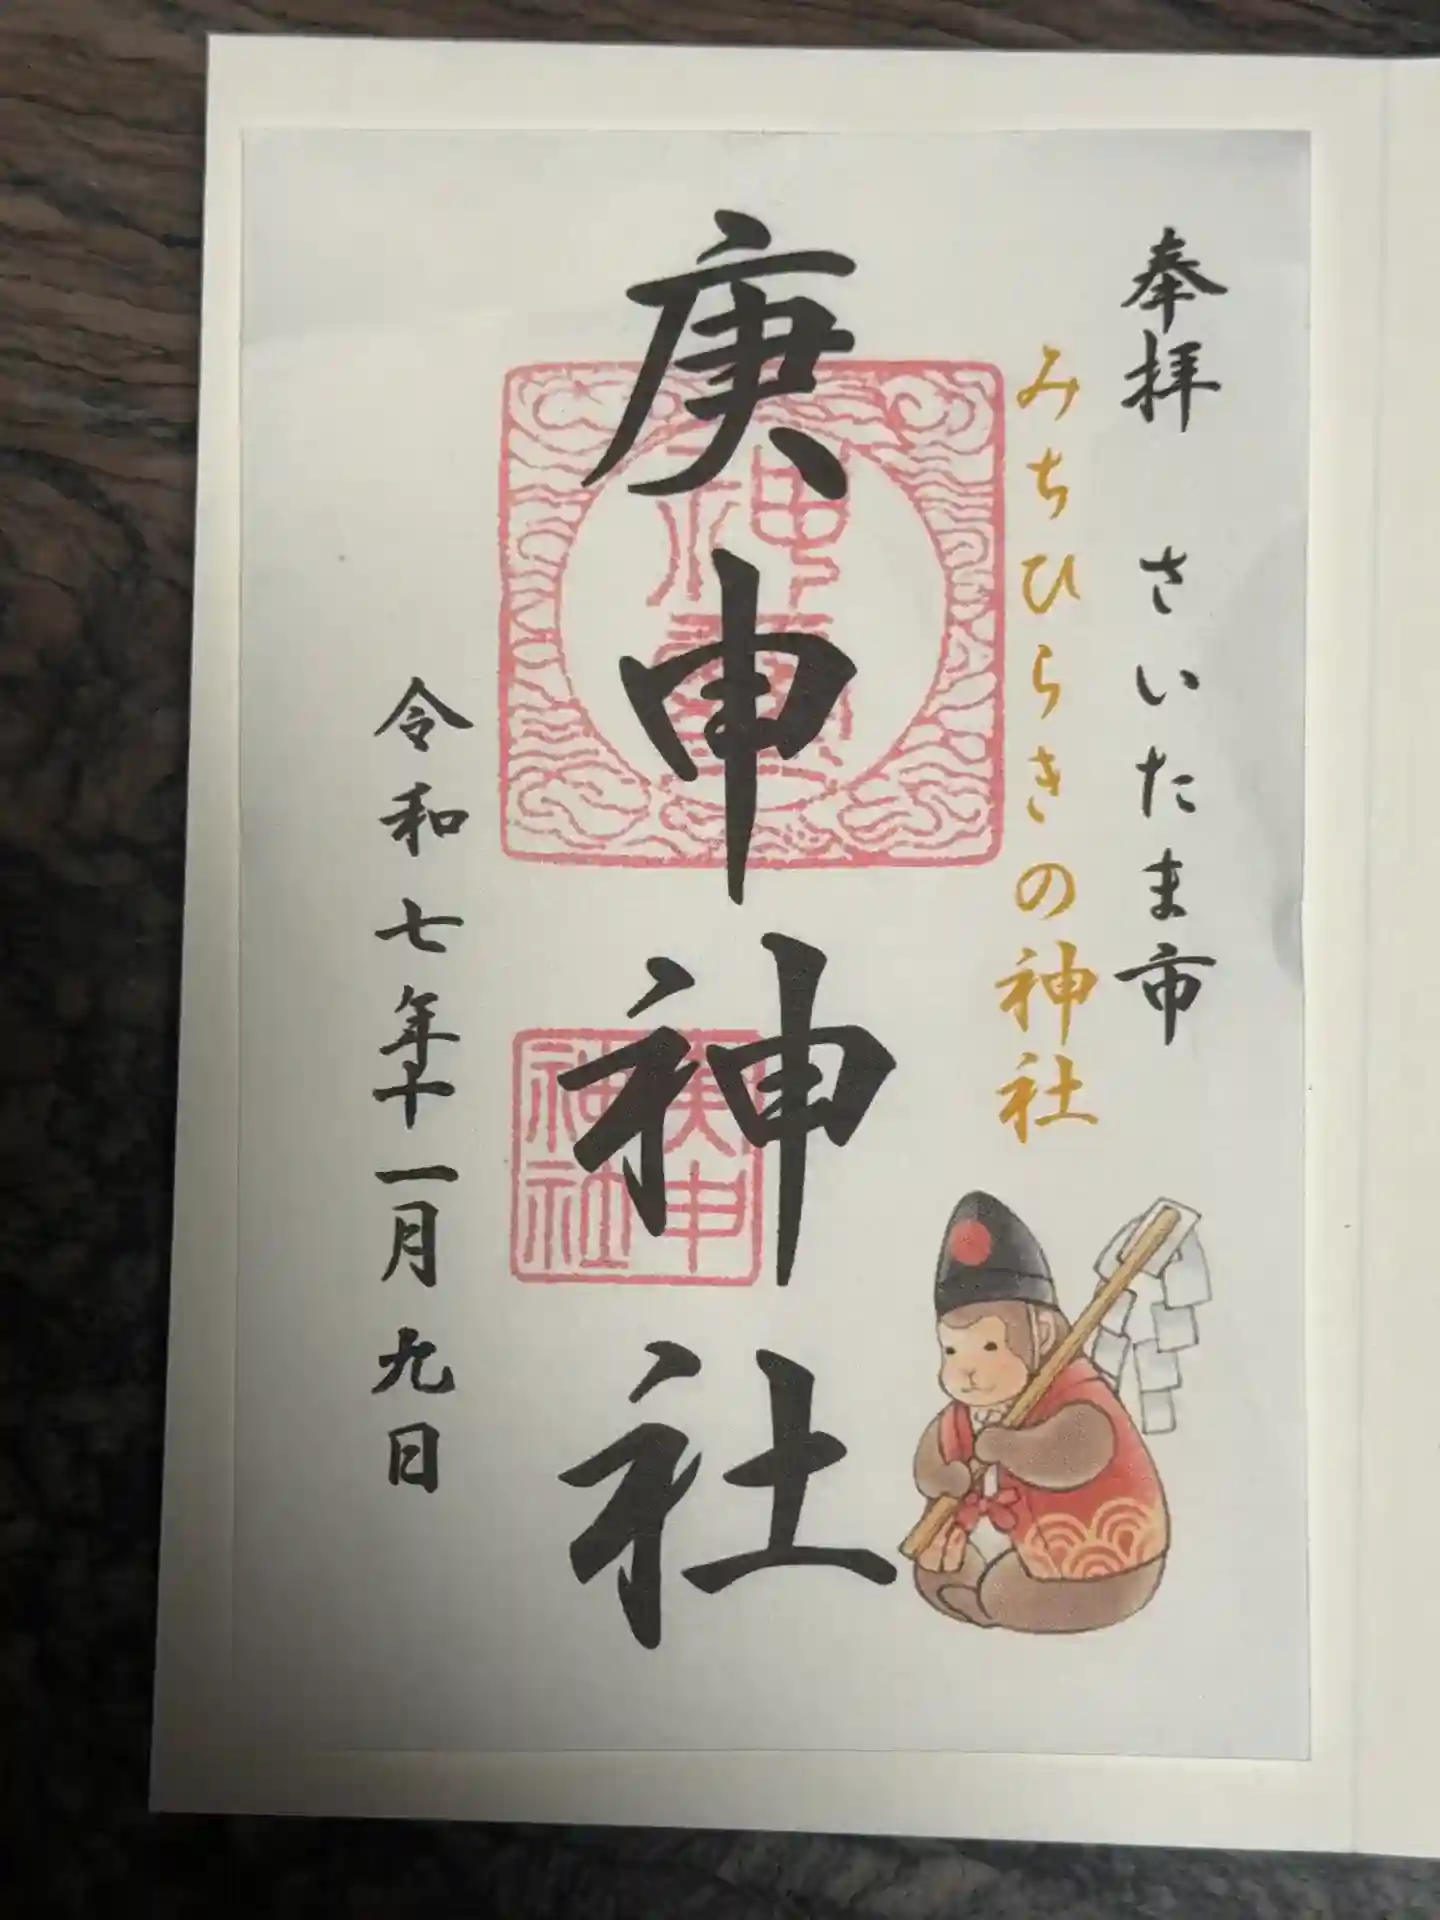 奉拝 さいたま市
みちひらきの神社
庚申神社
庚申
神社
令和七年十一月九日